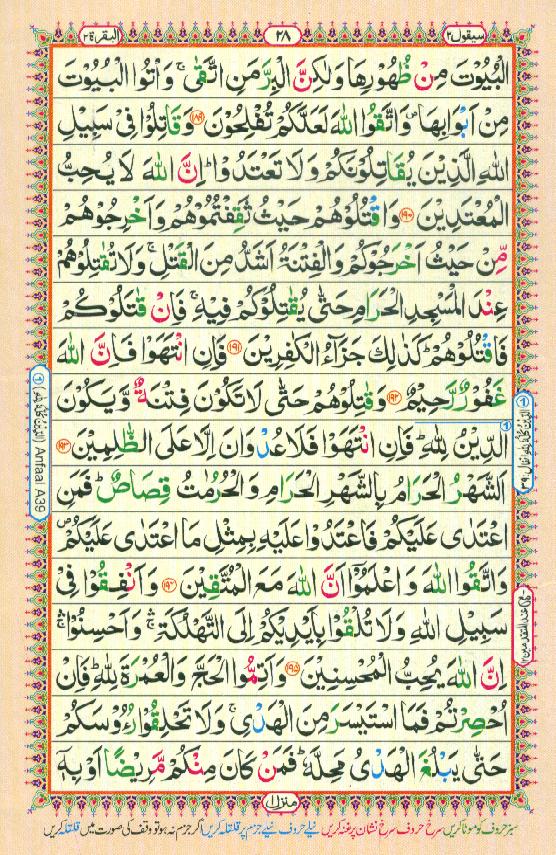 سيقول٢ ٢٨ البقرة٢
الْبُيُوْتَ مِنْ ظُهُوْرِهَا وَلٰكِنَّ الْبِرَّ مَنِ اتَّقٰىۚ وَاْتُوا الْبُيُوْتَ
مِنْ اَبْوَابِهَا۪ وَاتَّقُوا اللّٰهَ لَعَلَّكُمْ تُفْلِحُوْنَ ۱۸۹ وَقَاتِلُوْا فِىْ سَبِيْلِ
اللّٰهِ الَّذِيْنَ يُقَاتِلُوْنَكُمْ وَلَا تَعْتَدُوْاؕ اِنَّ اللّٰهَ لَا يُحِبُّ
الْمُعْتَدِيْنَ ۱۹۰ وَاقْتُلُوْهُمْ حَيْثُ ثَقِفْتُمُوْهُمْ وَاَخْرِجُوْهُمْ
مِّنْ حَيْثُ اَخْرَجُوْكُمْ وَالْفِتْنَةُ اَشَدُّ مِنَ الْقَتْلِۚ وَلَا تُقٰتِلُوْهُمْ
عِنْدَ الْمَسْجِدِ الْحَرَامِ حَتّٰى يُقٰتِلُوْكُمْ فِيْهِۚ فَاِنْ قٰتَلُوْكُمْ
فَاقْتُلُوْهُمْؕ كَذٰلِكَ جَزَآءُ الْكٰفِرِيْنَ ۱۹۱ فَاِنِ انْتَهَوْا فَاِنَّ اللّٰهَ
غَفُوْرٌ رَّحِيْمٌ ۱۹۲ وَقٰتِلُوْهُمْ حَتّٰى لَا تَكُوْنَ فِتْنَةٌ وَّيَكُوْنَ
الدِّيْنُ لِلّٰهِؕ فَاِنِ انْتَهَوْا فَلَا عُدْوَانَ اِلَّا عَلَى الظّٰلِمِيْنَ ۱۹۳
اَلشَّهْرُ الْحَرَامُ بِالشَّهْرِ الْحَرَامِ وَالْحُرُمٰتُ قِصَاصٌؕ فَمَنِ
اعْتَدٰى عَلَيْكُمْ فَاعْتَدُوْا عَلَيْهِ بِمِثْلِ مَا اعْتَدٰى عَلَيْكُمْ۪
وَاتَّقُوا اللّٰهَ وَاعْلَمُوْۤا اَنَّ اللّٰهَ مَعَ الْمُتَّقِيْنَ ۱۹۴ وَاَنْفِقُوْا فِىْ
سَبِيْلِ اللّٰهِ وَلَا تُلْقُوْا بِاَيْدِيْكُمْ اِلَى التَّهْلُكَةِۛۚ وَاَحْسِنُوْاۛۚ
اِنَّ اللّٰهَ يُحِبُّ الْمُحْسِنِيْنَ ۱۹۵ وَاَتِمُّوا الْحَجَّ وَالْعُمْرَةَ لِلّٰهِؕ فَاِنْ
اُحْصِرْتُمْ فَمَا اسْتَيْسَرَ مِنَ الْهَدْىِۚ وَلَا تَحْلِقُوْا رُءُوْسَكُمْ
حَتّٰى يَبْلُغَ الْهَدْىُ مَحِلَّهٗؕ فَمَنْ كَانَ مِنْكُمْ مَّرِيْضًا اَوْ بِهٖۤ
منزل١
سبز حروف کو موٹا کریں سرخ حروف سرخ نشان پر غنہ کریں نیلے حروف نیلے جزم پر قلقلہ کریں اگر جزم نہ ہو تو وقف کی صورت میں قلقلہ کریں
Anfaal A39